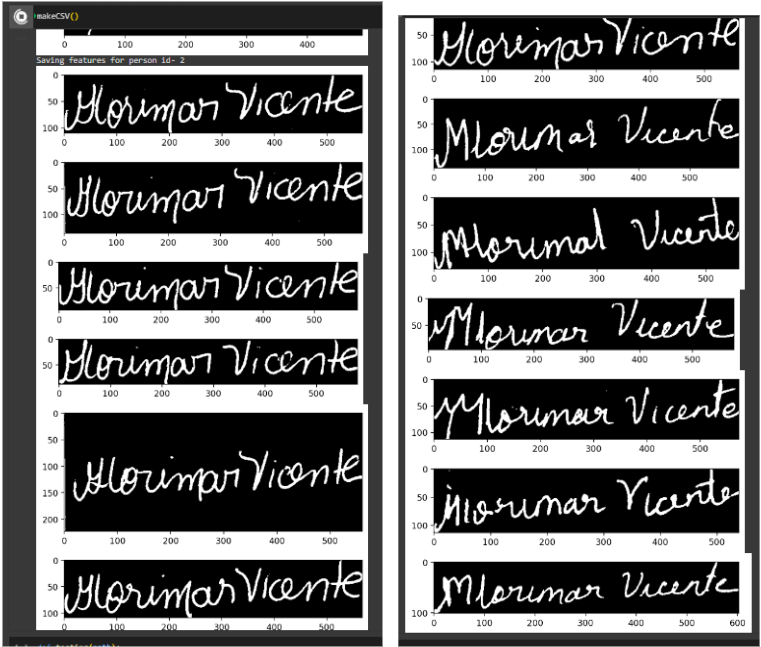 makeCSV()
0 100 200 300 400
Saving features for person id- 2
0
50
100
Glorimar Vicente
0 100 200 300 400 500
0
50
100
Glorimar Vicente
0 100 200 300 400 500
0
50
Glorimar Vicente
0 100 200 300 400 500
0
50
Glorimar Vicente
0 100 200 300 400 500
0
50
100
150
200
Glorimar Vicente
0 100 200 300 400 500
0
50
100
Glorimar Vicente
0 100 200 300 400 500
50
100
Glorimar Vicente
0 100 200 300 400 500
0
50
100
Mlorimar Vicente
0 100 200 300 400 500
0
50
100
Mlorimal Vicente
0 100 200 300 400 500
0
50
Mlorimar Vicente
0 100 200 300 400 500
0
50
100
Mlorimar Vicente
0 100 200 300 400 500
0
50
100
Mlorimar Vicente
0 100 200 300 400 500
0
50
100
Mlorimar Vicente
0 100 200 300 400 500 600